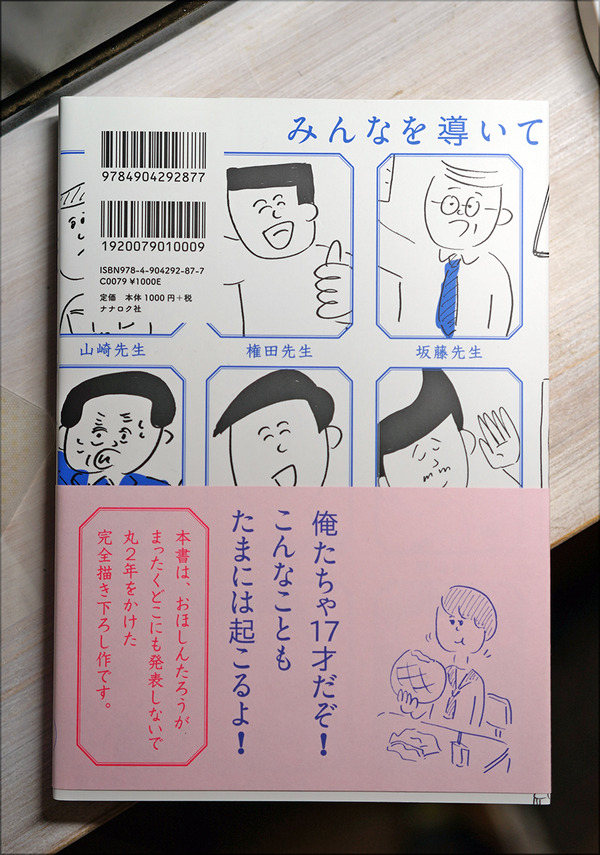 みんなを導いて
9784904292877
1920079010009
ISBN978-4-904292-87-7
C0079 ¥1000E
定価 本体1000円+税
ナナロク社
山崎先生
権田先生
坂藤先生
俺たちゃ17才だぞ!
こんなことも
たまには起こるよ!
本書は、おほしんたろうが、
まったくどこにも発表しないで
丸2年をかけた
完全描き下ろし作です。